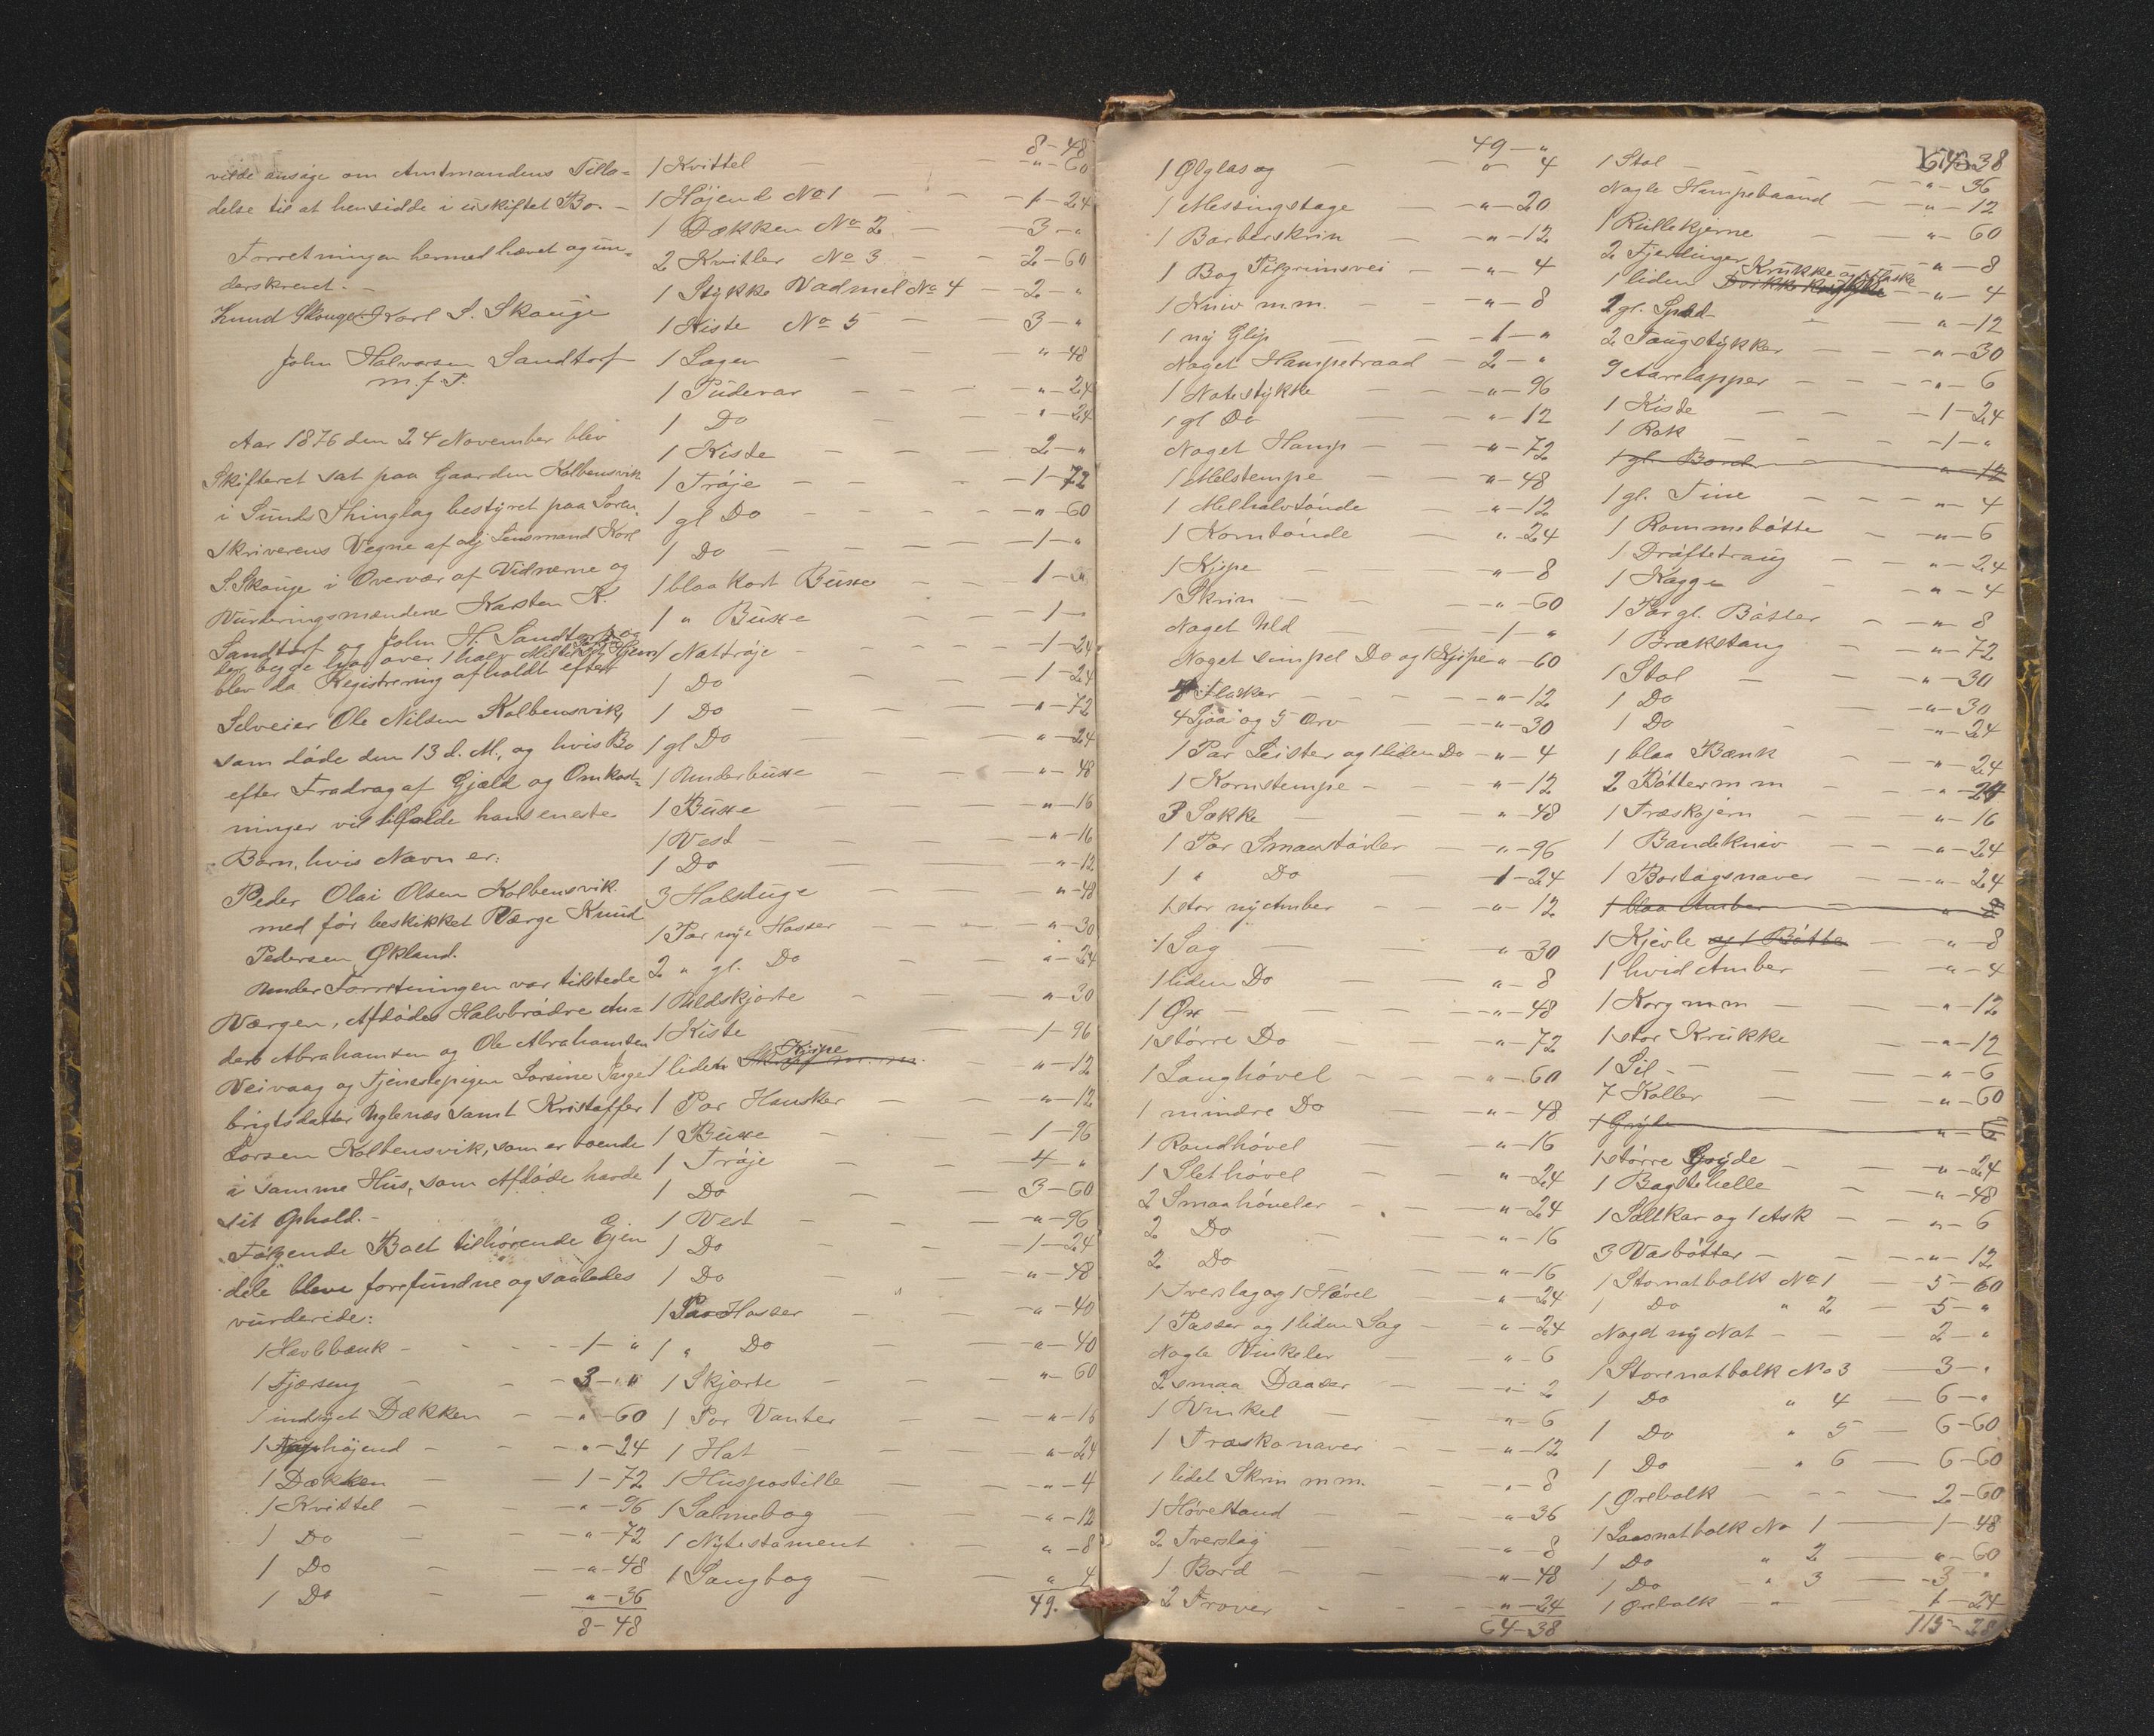 vilde ansøge om Amtmandens Tilla-
delse til at hensidde i uskiftet Bo. -
Forretningen hermed hævet og un-
derskrevet. -
Knud Skouge Karl S. Skouge
John Halvorsen Sandtorf
m. f. P.
Aar 1876 den 24 November blev
Skifteret sat paa Gaarden Kolbensvik
i Sunds Thinglag bestyret paa Soren-
skriverens Vegne af cfj Lensmand Karl
S. Skouge i Overvær af Vidnerne og
Vurderingsmændene Karsten K.
Sandtorf og John H. Sandtorf og
der byde hver over 1 halv Mil fra sit Hjem
blev da Registrering afholdt efter
Selveier Ole Nilsen Kolbensvik,
som døde den 13 d. M., og hvis Bo
efter Fradrag af Gjæld og Omkost-
ninger vil tilfalde hans eneste
Barn, hvis Navn er:
Peder Olai Olsen Kolbensvik
med før beskikket Værge Knud
Pedersen Økland.
Under Forretningen var tilstede
Værgen, Afdødes Halvbrødre An-
ders Abrahamsen og Ole Abrahamsen
Veivaag og Tjenestepigen Sorsine Inge-
brigtsdatter Uglenæs samt Kristoffer
Larsen Kolbensvik, som er boende
i samme Hus, som Afdøde havde
sit Ophold. -
Følgende Boet tilhørende Ejen
dele bleve forefundne og saaledes
vurderede:
1 Høvlbænk - 1 - "
1 Fjærseng - 3 - "
1 indsyet Dækken - " - 60
1 højend - " - 24
1 Dækken - 1 - 72
1 Kvittel - " - 96
1 Do - " - 72
1 Do - " - 48
1 Do - " - 36
8 - 48
8 - 48
1 Kvittel - " - 60
1 Højend No 1 - 1 - 24
1 Dækken No 2 - 3 - "
2 Kvitler No 3 - 2 - 60
1 Stykke Vadmel No 4 - 2 - "
1 Kiste No 5 - 3 - "
1 Lagen - " - 48
1 Pudevar - " - 24
1 Do - " - 24
1 Kiste - 2 - "
1 Trøje - 1 - 72
1 gl Do - " - 60
1 Do - 1 - "
1 blaa kort Buxe - 1 - "
1 " Buxe - 1 -
1 Nattrøje - 1 - 24
1 Do - 1 - 24
1 Do - " - 72
1 gl Do - " - 24
1 Underbuxe - " - 48
1 Buxe - " - 16
1 Vest - " - 16
1 Do - " - 12
3 Halsduge - " - 48
1 Par nye Hoser - " - 30
2 " gl. Do - " - 24
1 Uldskjorte - " - 30
1 Kiste - 1 - 96
1 liden Kjipe - " - 12
1 Par Hansker - " - 12
1 Buxe - 1 - 96
1 Trøje - 4 - "
1 Do - 3 - 60
1 Vest - " - 96
1 Do - 1 - 24
1 Do - " - 48
1 Par Hosser - " - 40
1 " Do - " - 40
1 Skjorte - " - 60
1 Par Vanter - " - 16
1 Hat - " - 24
1 Huspostille - " - 4
1 Salmebog - " - 12
1 Nytestament - " - 8
1 Sangbog - " 4
49.
49 - "
1 Ølglas og - " 4
1 Messingstage - " - 20
1 Barberskrin - " - 12
1 Bog Pilgrimsvei - " - 4
1 Kniv m.m. - " - 8
1 ny Glip - 1 - "
Noget Hampetraad - 2 - "
1 Notestykke - " - 96
1 gl Do - " - 12
Noget Hamp - " - 72
1 Melstempe - " - 48
1 Melhalvtønde - " - 12
1 Korntønde - " - 24
1 Kjipe - " - 8
1 Skrin - " - 60
Noget Uld - 1 - "
Noget simpel Do og 1 Kjipe " - 60
4 Flasker - " - 12
4 Ljaa og 5 Orv - " - 30
1 Par Leister og 1 liden Do - " - 4
1 Kornstempe - " - 12
3 Sække - " - 48
1 Par Smaastøvler - " - 96
1 " Do - 1 - 24
1 stor ny Amber - " - 12
1 Sag - " - 30
1 liden Do - " - 8
1 Øx - " - 48
1 større Do - " - 72
1 Langhøvel - " - 60
1 mindre Do - " - 48
1 Randhøvel - " - 16
1 Slethøvel - " - 24
2 Smaahøveler - " - 24
2 Do - " - 16
2 Do - " - 16
1 Tverslag og 1 Høvel - " - 24
1 Passer og 1 liden Sag - " - 24
Nogle Vinkeler - " - 6
2 smaa Daaser - " - 2
1 Vinkel - " - 6
1 Træskonaver - " - 12
1 lidet Skrin m.m. - " - 8
1 Høveltand - " - 36
2 Tverslag - " - 8
1 Bord - " - 48
2 Trover - " - 24
64 - 38
64 - 38
1 Stol - " - 36
Nogle Hampebaand - " - 12
1 Rullekjerne - " - 60
2 Fjerdinger - " - 8
1 liden Krukke og 1 Flaske - " - 4
2 gl. Spad - " - 12
2 Taugstykker - " - 30
9 Aarelapper - " - 6
1 Kiste - 1 - 24
1 Rok - 1 - "
1 gl. Bord - " - 12
1 gl. Tine - " - 4
1 Rommebøtte - " - 6
1 Drøftetraug - " - 24
1 Kagge - " - 4
1 Par gl. Bøtter - " - 8
1 Brækstang - " - 72
1 Stol - " - 30
1 Do - " - 30
1 Do - " - 24
1 blaa Bænk - " - 24
2 Bøtter m m - " - 24
1 Træskojern - " - 16
1 Bandekniv - " - 24
1 Bortagsnaver - " - 24
1 blaa Amber - " - 8
1 Kjevle og 1 Bøtte - " - 8
1 hvid Amber - " - 4
1 Korg m m - " - 12
1 stor Krukke - " - 12
1 Sil - " - 6
7 Koller - " - 60
1 Gryte - " - 6
1 større Gryde - " - 24
1 Bagstehelle - " - 48
1 Saltkar og 1 Ask - " - 6
3 Vasbøtter - " - 12
1 Stornotbolk No 1 - 5 - 60
1 Do " 2 - 5 - "
Noget ny Not - 2 - "
1 Storenotbolk No 3 - 3 - "
1 Do " 4 - 6 - "
1 Do " 5 - 6 - 60
1 Do " 6 - 6 - 60
1 Ørebolk - 2 - 60
1 Laasnotbolk No 1 - 1 - 48
1 Do " 2 - " - 60
1 Do " 3 - 3 - "
1 Ørebolk - 1 - 24
115 - 28